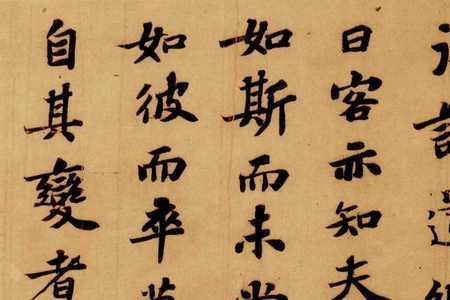 曰客亦知夫
如斯而未
如彼而卒
自其變者